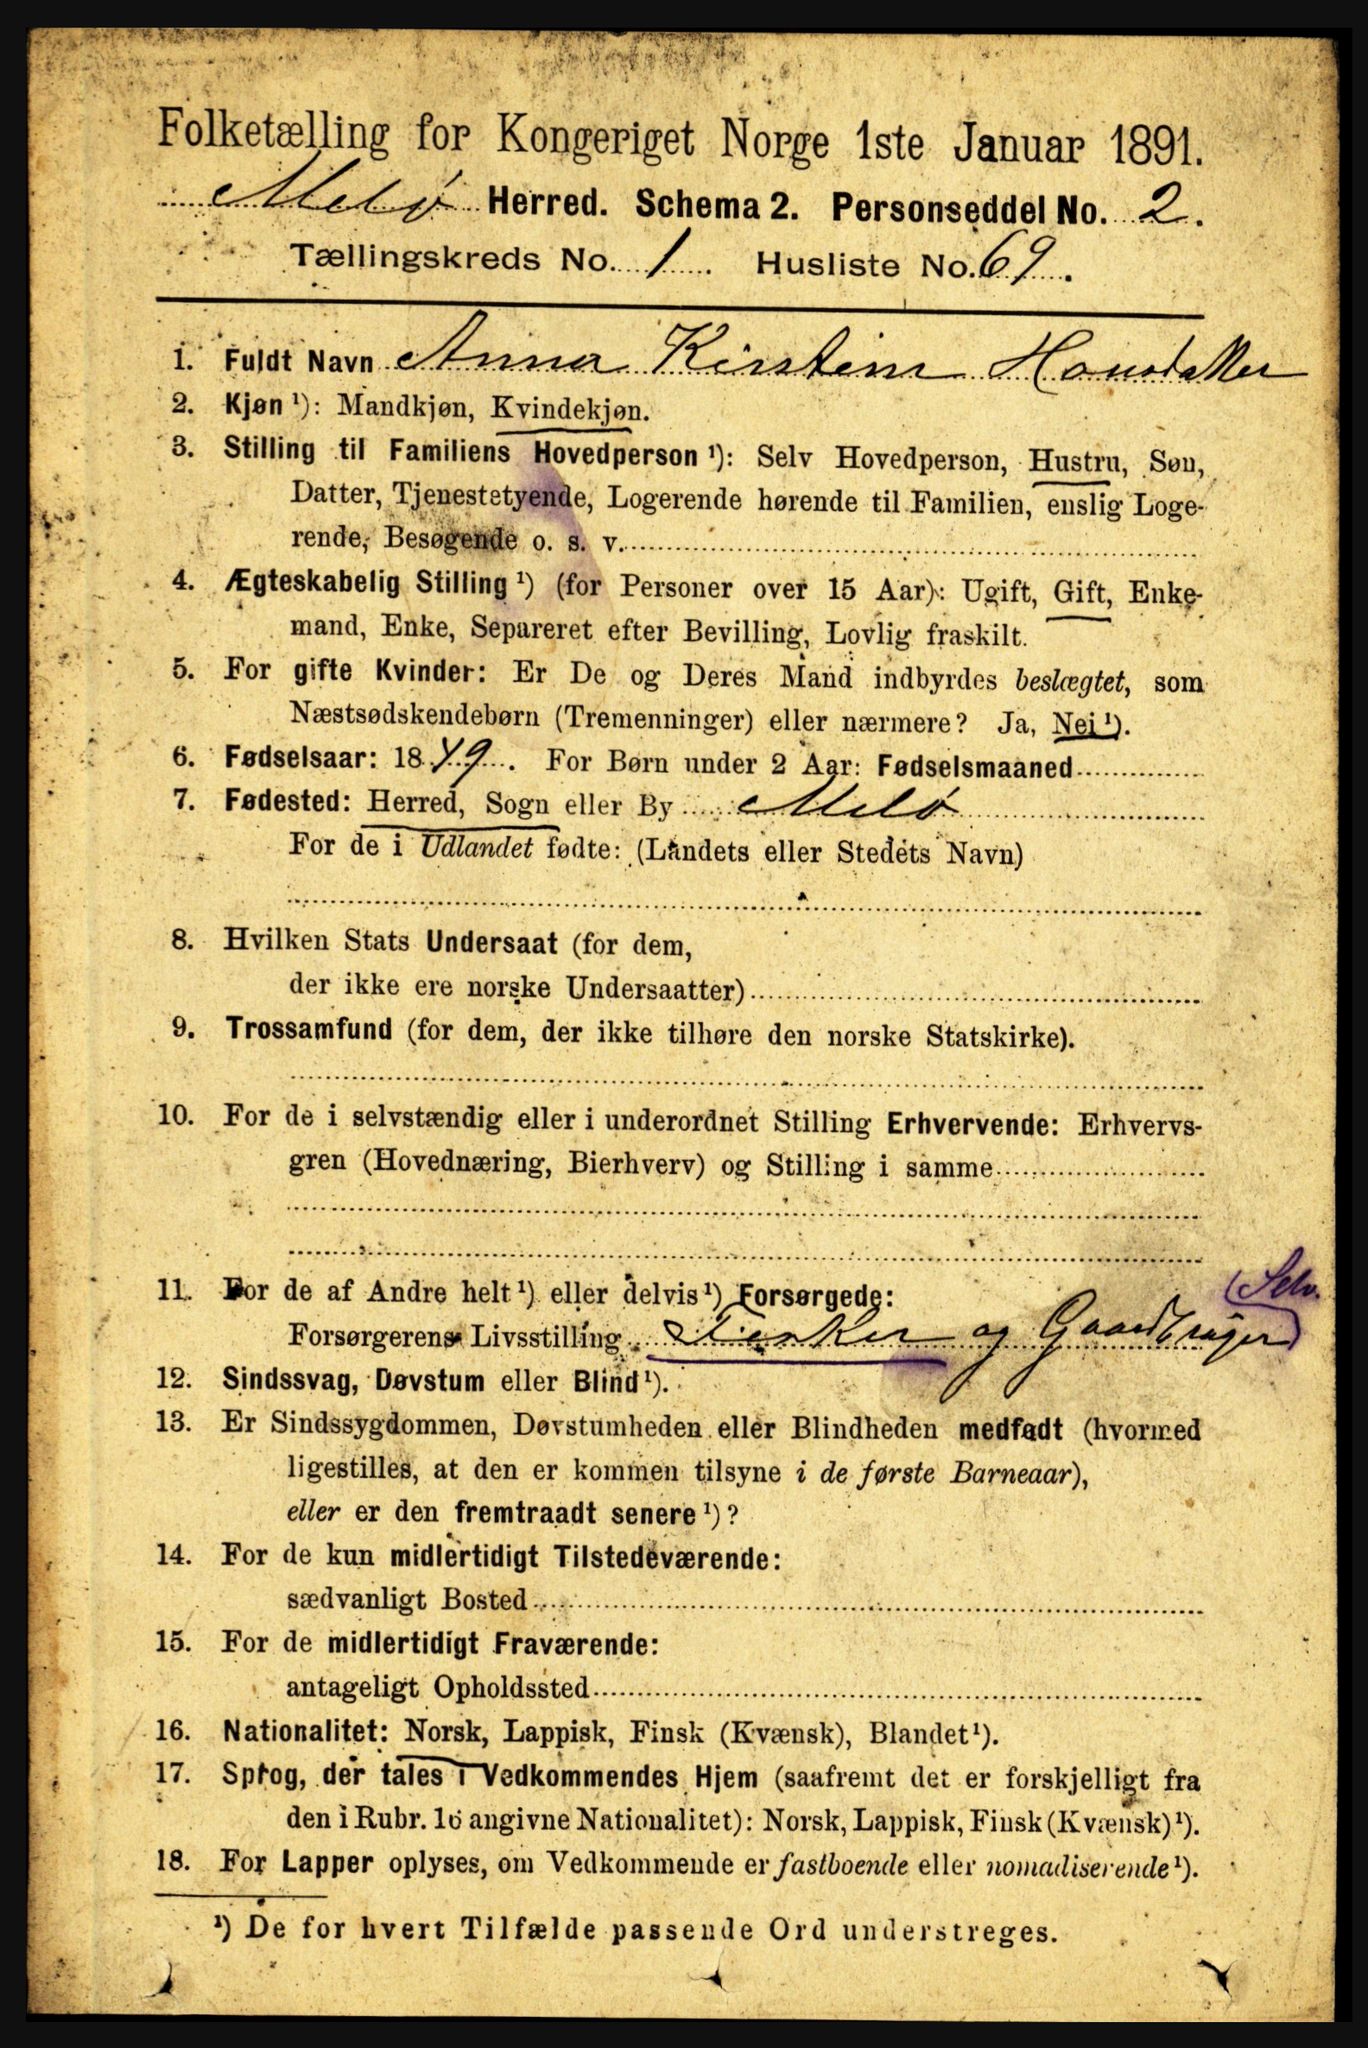 Folketælling for Kongeriget Norge 1ste Januar 1891.
Melø Herred. Schema 2. Personseddel No. 2.
Tællingskreds No. 1. Husliste No. 69.
1. Fuldt Navn Anna Kirstine
2. Kjøn ¹): Mandkjøn, Kvindekjøn.
3. Stilling til Familiens Hovedperson ¹): Selv Hovedperson, Hustru, Søn,
Datter, Tjenestetyende, Logerende hørende til Familien, enslig Loge-
rende, Besøgende o. s. v.
4. Ægteskabelig Stilling ¹) (for Personer over 15 Aar): Ugift, Gift, Enke-
mand, Enke, Separeret efter Bevilling, Lovlig fraskilt.
5. For gifte Kvinder: Er De og Deres Mand indbyrdes beslægtet, som
Næstsødskendebørn (Tremenninger) eller nærmere? Ja, Nei ¹).
6. Fødselsaar: 1849. For Børn under 2 Aar: Fødselsmaaned
7. Fødested: Herred, Sogn eller By Melø
For de i Udlandet fødte: (Landets eller Stedets Navn)
8. Hvilken Stats Undersaat (for dem,
der ikke ere norske Undersaatter)
9. Trossamfund (for dem, der ikke tilhøre den norske Statskirke).
10. For de i selvstændig eller i underordnet Stilling Erhvervende: Erhvervs-
gren (Hovednæring, Bierhverv) og Stilling i samme
11. For de af Andre helt ¹) eller delvis ¹) Forsørgede: (Selv.
Forsørgerens Livsstilling Fisker og Gaardbruger)
12. Sindssvag, Døvstum eller Blind ¹).
13. Er Sindssygdommen, Døvstumheden eller Blindheden medfødt (hvormed
ligestilles, at den er kommen tilsyne i de første Barneaar),
eller er den fremtraadt senere ¹)?
14. For de kun midlertidigt Tilstedeværende:
sædvanligt Bosted
15. For de midlertidigt Fraværende:
antageligt Opholdssted
16. Nationalitet: Norsk, Lappisk, Finsk (Kvænsk), Blandet ¹).
17. Sprog, der tales i Vedkommendes Hjem (saafremt det er forskjelligt fra
den i Rubr. 16 angivne Nationalitet): Norsk, Lappisk, Finsk (Kvænsk) ¹).
18. For Lapper oplyses, om Vedkommende er fastboende eller nomadiserende ¹).
¹) De for hvert Tilfælde passende Ord understreges.